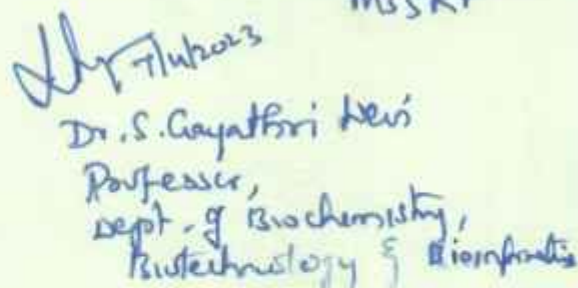 MSSRF
7/11/2023
Dr. S. Gayathri Devi
Professor,
Dept. of Biochemistry,
Biotechnology & Bioinformatics